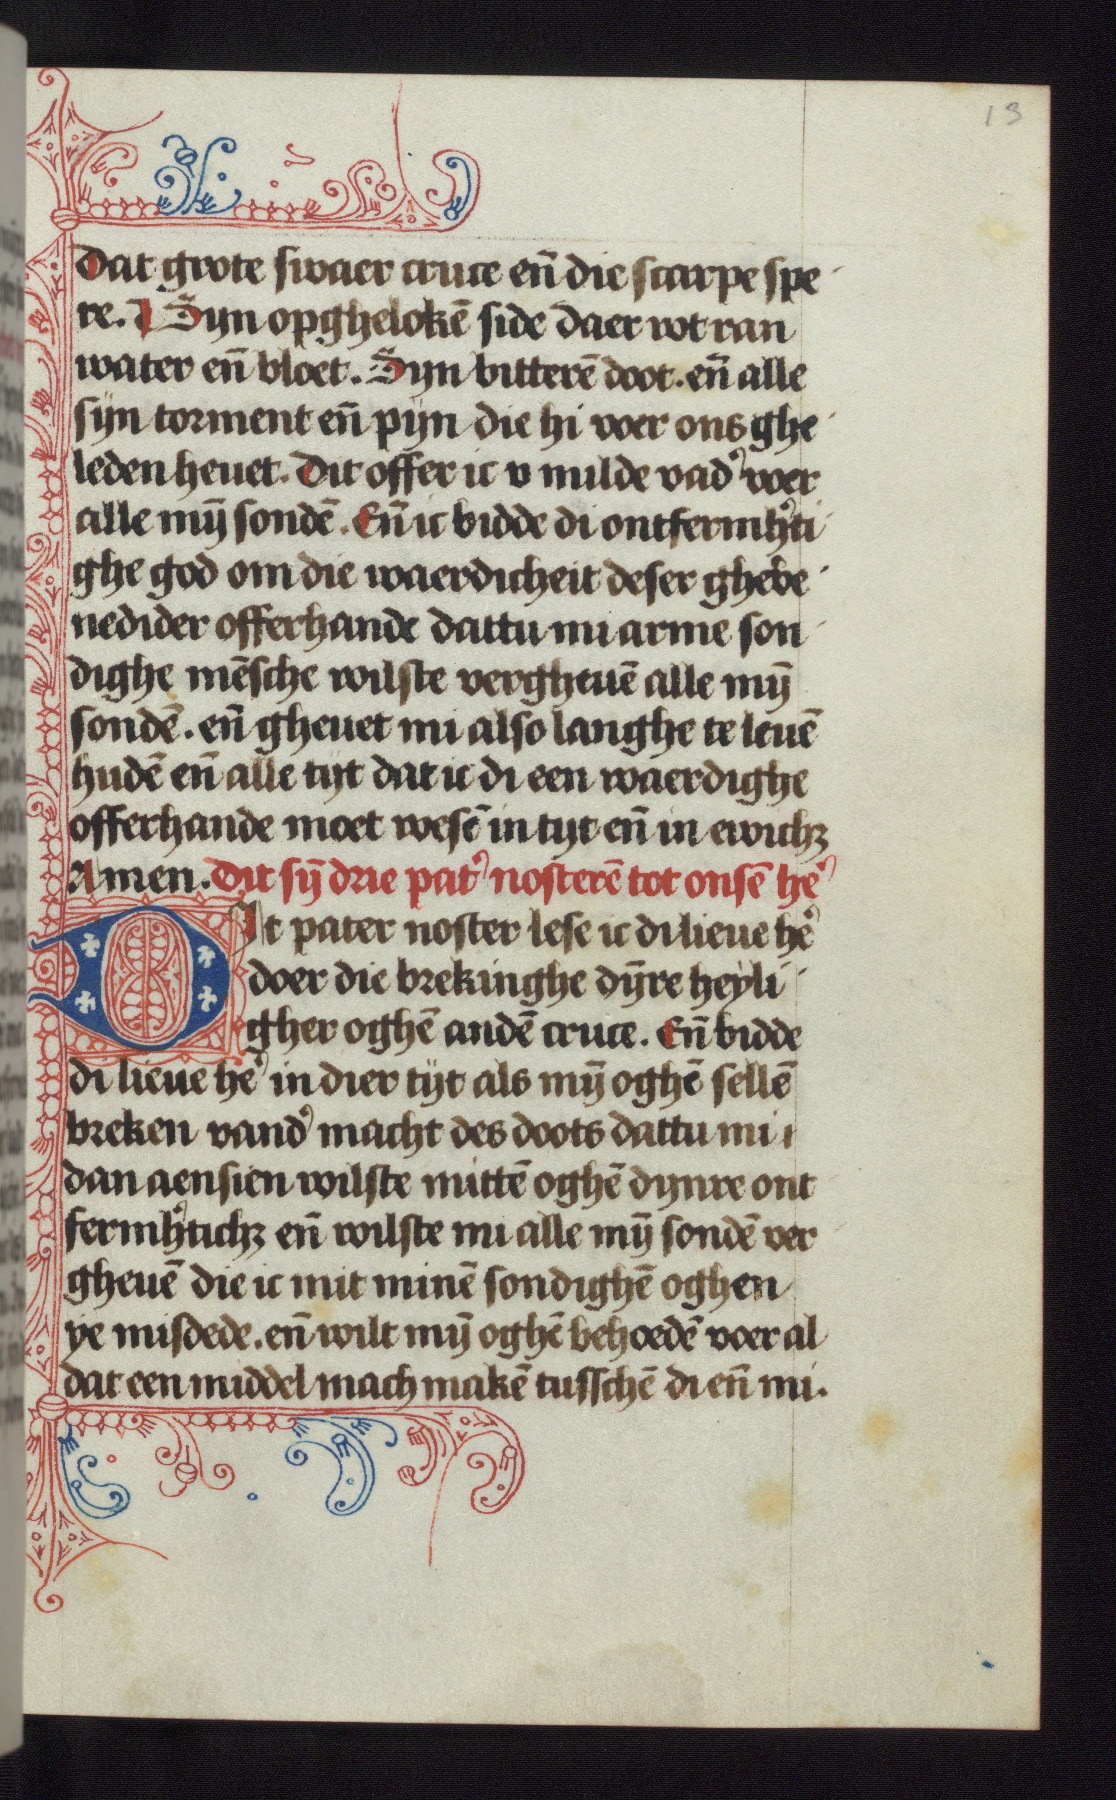 13
Dat grote swaer cruce en̄ die scarpe spe
re. Syn opghelokē side daer wt ran
water en̄ bloet. Syn bitterē doot. en̄ alle
sijn torment en̄ pijn die hi voer ons ghe
leden heuet. Dit offer ic v milde vadʾ voer
alle mȳ sondē. En̄ ic bidde di ontfermhʾti
ghe god om die waerdicheit deser ghebe
nedider offerhande dattu mi arme son
dighe mēsche wilste vergheuē alle mȳ
sondē. en̄ gheuet mi also langhe te leuē
hudē en̄ alle tijt dat ic di een waerdighe
offerhande moet wesē in tyt en̄ in ewichꝫ
Amen. Dit sȳ drie patʾ nosterē tot onsē hēʾ
Dit pater noster lese ic di lieue hēʾ
doer die brekinghe dȳre heyli
gher oghē andē cruce. En̄ bidde
di lieue hēʾ in dier tijt als mȳ oghē sellē
breken vandʾ macht des doots dattu mi
dan aensien wilste mittē oghē dynre ont
fermhʾtichꝫ en̄ wilste mi alle mȳ sondē ver
gheuē die ic mit minē sondighē oghen
ye misdede. en̄ wilt mȳ oghē behoedē voer al
dat een middel mach makē tusschē di en̄ mi.